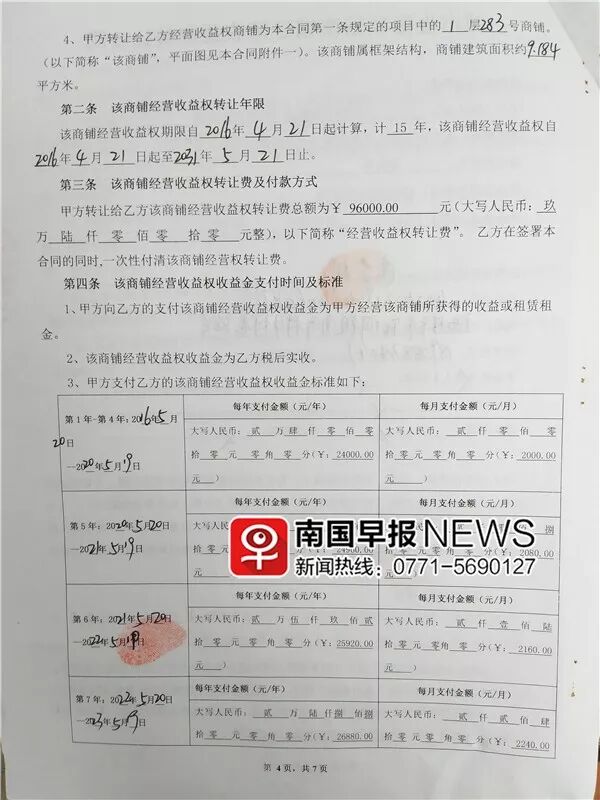 4、甲方转让给乙方经营收益权商铺为本合同第一条规定的项目中的 1 层283号商铺。
(以下简称“该商铺”,平面图见本合同附件一)。该商铺属框架结构,商铺建筑面积约9.184
平方米。
第二条 该商铺经营收益权转让年限
该商铺经营收益权期限自2016年4月21日起计算,计 15 年,该商铺经营收益权自
2016年4月21日起至2031年5月21日止。
第三条 该商铺经营收益权转让费及付款方式
甲方转让给乙方该商铺经营收益权转让费总额为¥ 96000.00 元(大写人民币: 玖
万 陆 仟 零 佰 零 拾 零 元整),以下简称“经营收益权转让费”。 乙方在签署本
合同的同时,一次性付清该商铺经营权转让费。
第四条 该商铺经营收益权收益金支付时间及标准
1、甲方向乙方的支付该商铺经营收益权收益金为甲方经营该商铺所获得的收益或租赁租
金。
2、该商铺经营收益权收益金为乙方税后实收。
3、甲方支付乙方的该商铺经营收益权收益金标准如下:
第1年-第4年:2016年5月
20日
—2020年5月19日
每年支付金额(元/年)
每月支付金额(元/月)
大写人民币: 贰 万 肆 仟 零 佰 零
拾 零 元 零 角 零 分(¥: 24000.00
元 )
大写人民币: 贰 仟 零 佰 零
拾 零 元 零 角 零 分(¥: 2000.00
元 )
第5年:2020年5月20日
—2021年5月19日
每年支付金额(元/年)
每月支付金额(元/月)
大写人民
捌
2080.00
元 )
南国早报NEWS
新闻热线:0771-5690127
第6年:2021年5月20日
—2022年5月19日
每年支付金额(元/年)
每月支付金额(元/月)
大写人民币: 贰 万 伍 仟 玖 佰 贰
拾 零 元 零 角 零 分(¥: 25920.00
元 )
大写人民币: 贰 仟 壹 佰 陆
拾 零 元 零 角 零 分(¥: 2160.00
元 )
第7年:2022年5月20日
—2023年5月19日
每年支付金额(元/年)
每月支付金额(元/月)
大写人民币: 贰 万 陆 仟 捌 佰 捌
拾 零 元 零 角 零 分(¥: 26880.00
元 )
大写人民币: 贰 仟 贰 佰 肆
拾 零 元 零 角 零 分(¥: 2240.00
元 )
第 4 页,共 7 页